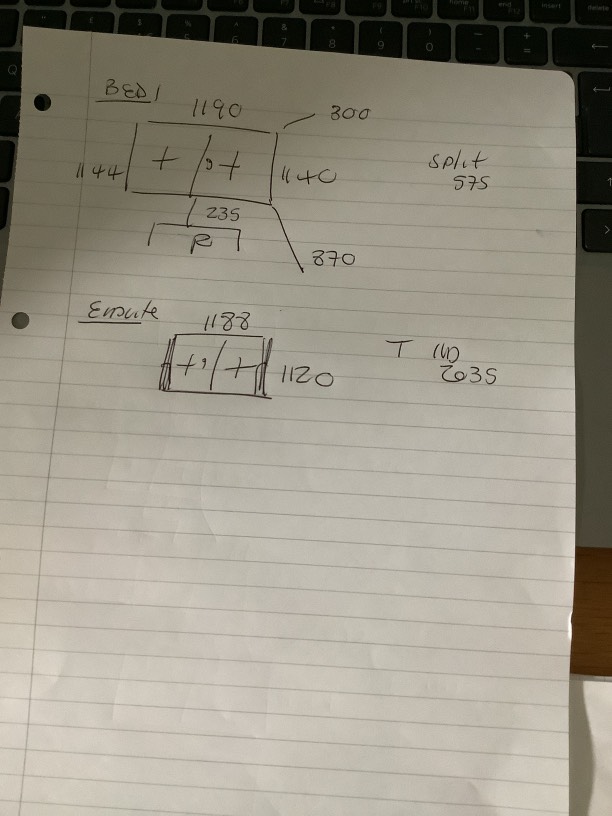 BED1
1190
300
1144
+
+
1140
split
575
235
R
870
Ensuite
1188
+
+
1120
T
2035